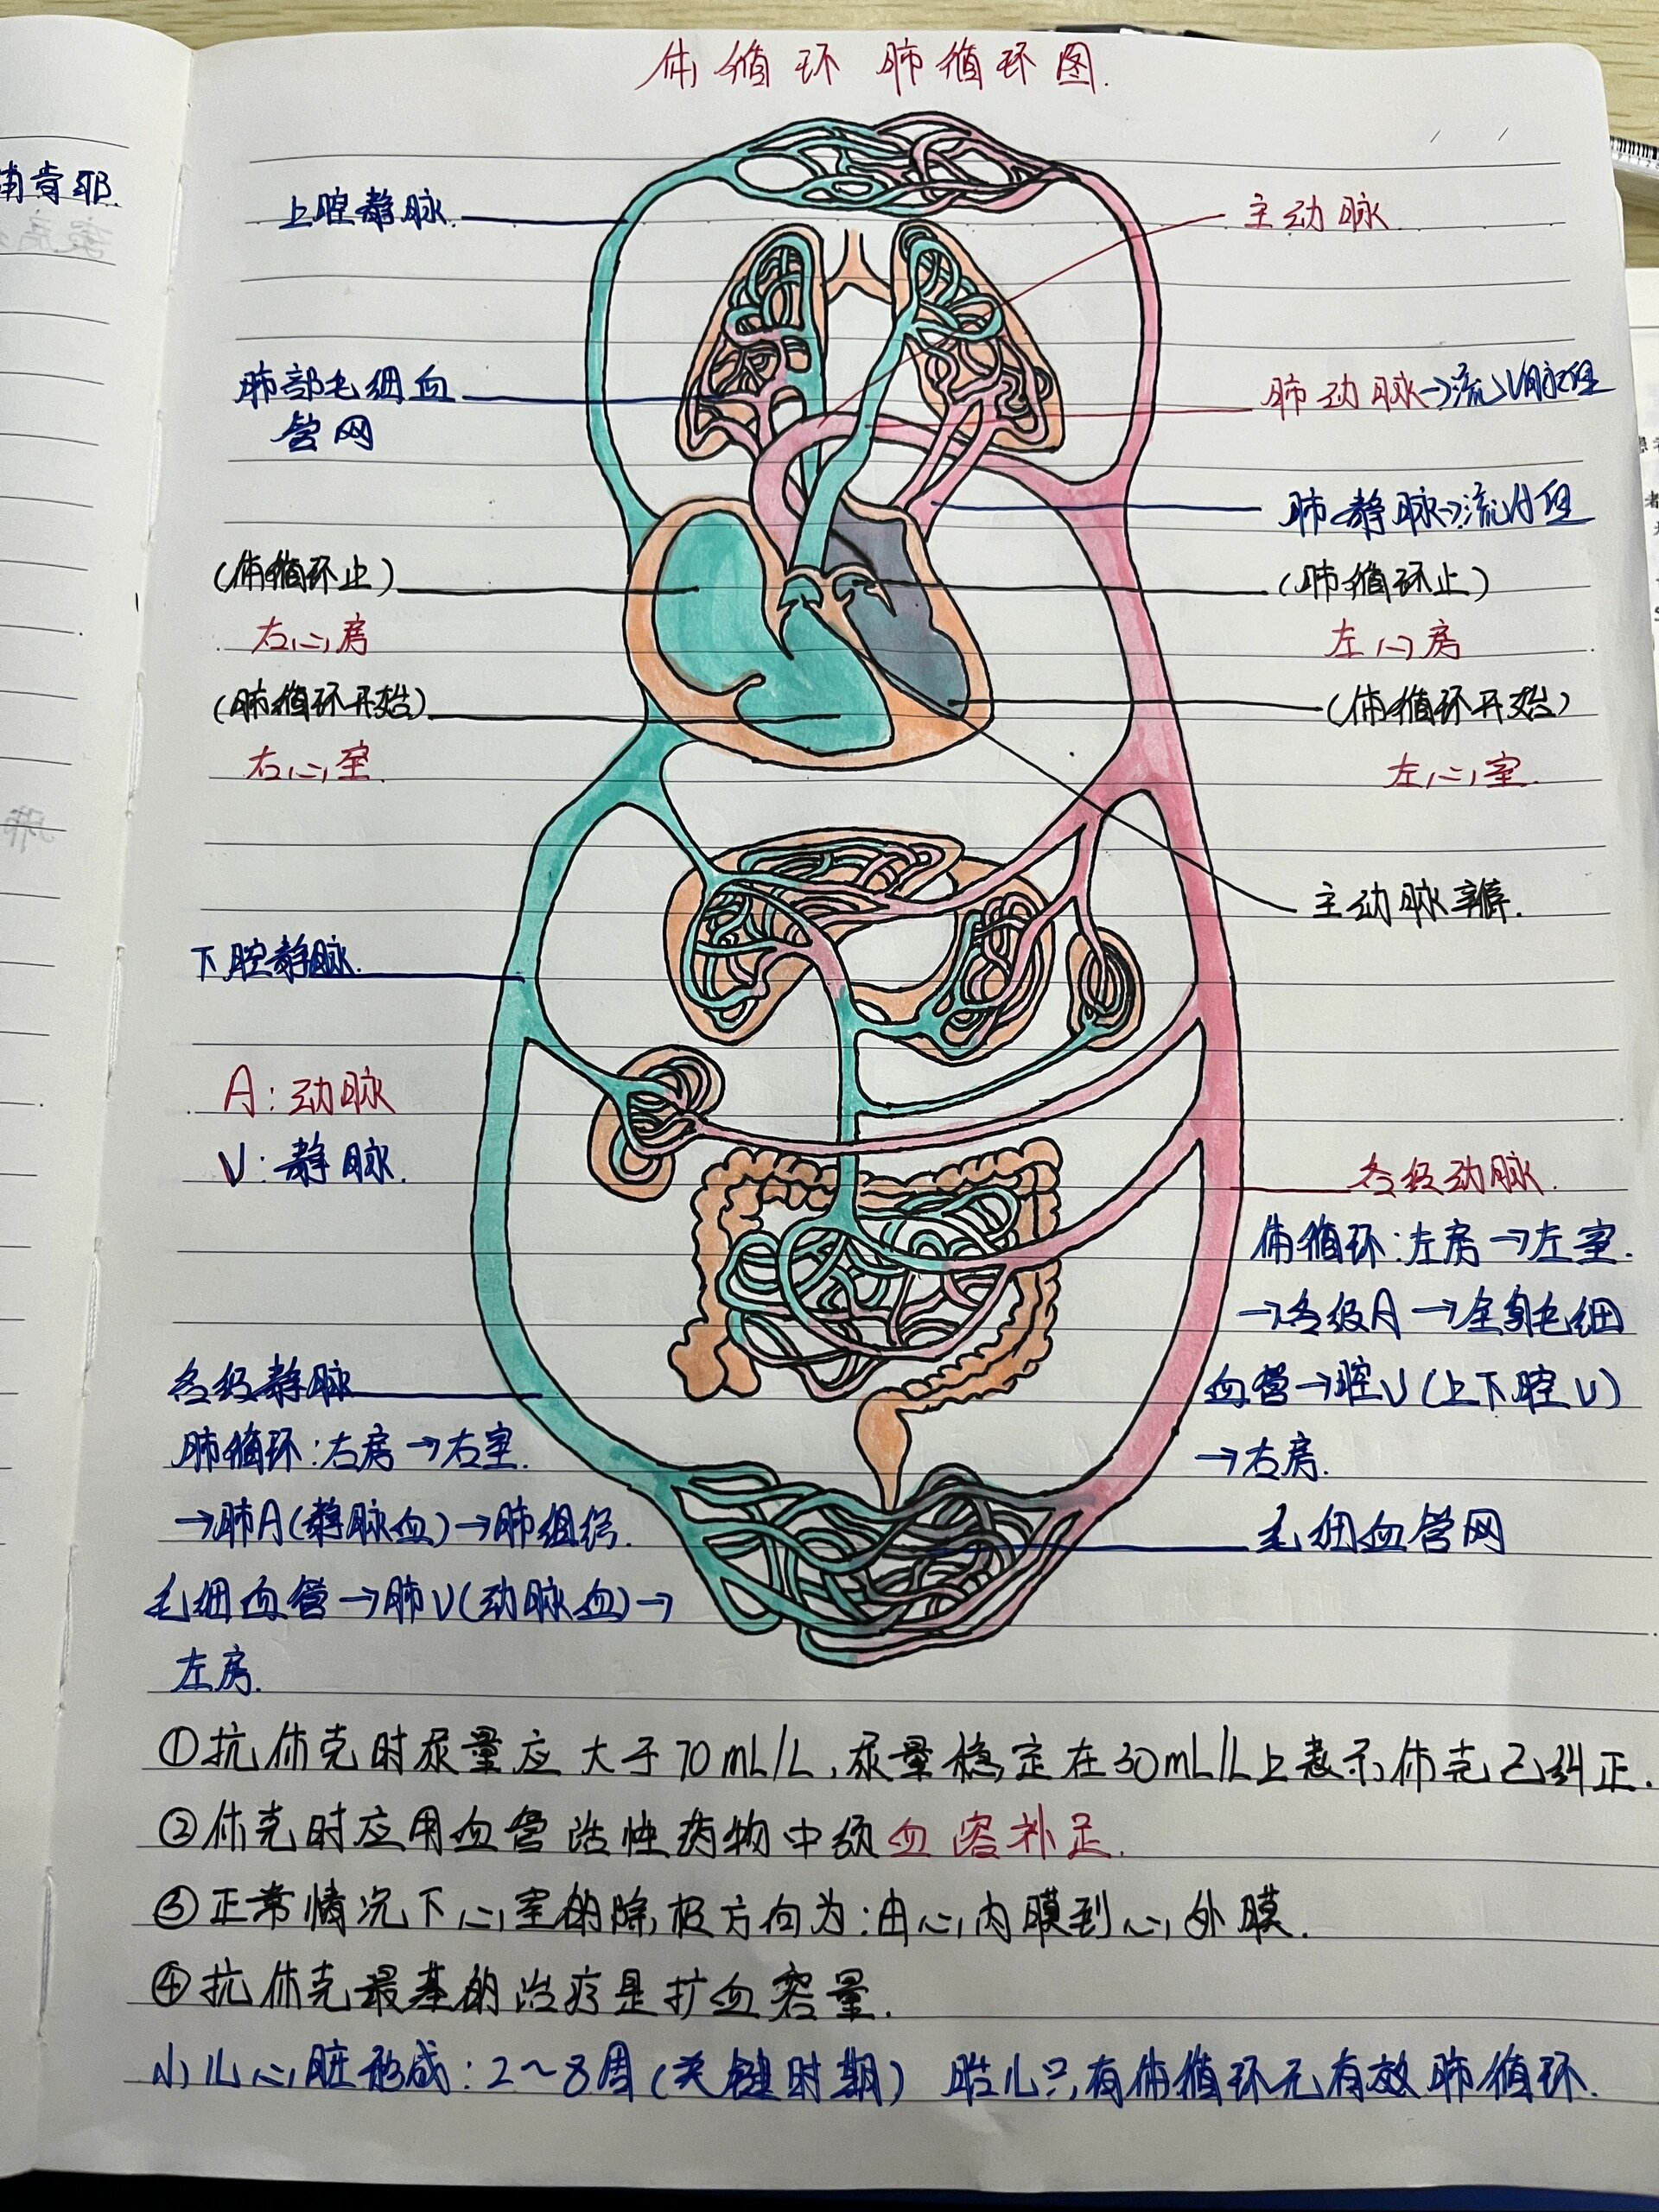 体循环 肺循环图.
上腔静脉.
主动脉
肺部毛细血
管网
肺动脉→流V血
肺静脉→流A血
(体循环止)
右心房
(肺循环止)
左心房
(肺循环开始)
右心室.
(体循环开始)
左心室.
主动脉瓣.
下腔静脉.
A:动脉
V:静脉.
各级动脉.
体循环:左房→左室.
→各级A→全身毛细
血管→腔V(上下腔V)
→右房.
毛细血管网
各级静脉
肺循环:右房→右室.
→肺A(静脉血)→肺组织.
毛细血管→肺V(动脉血)→
左房.
①抗休克时尿量应大于70mL/L,尿量稳定在30mL/L上表示休克已纠正.
②休克时应用血管活性药物中须血容补足.
③正常情况下心室的除极方向为:由心内膜到心外膜.
④抗休克最基的治疗是扩血容量.
小儿心脏形成:2~8周(关键时期) 胎儿只有体循环无有效肺循环.